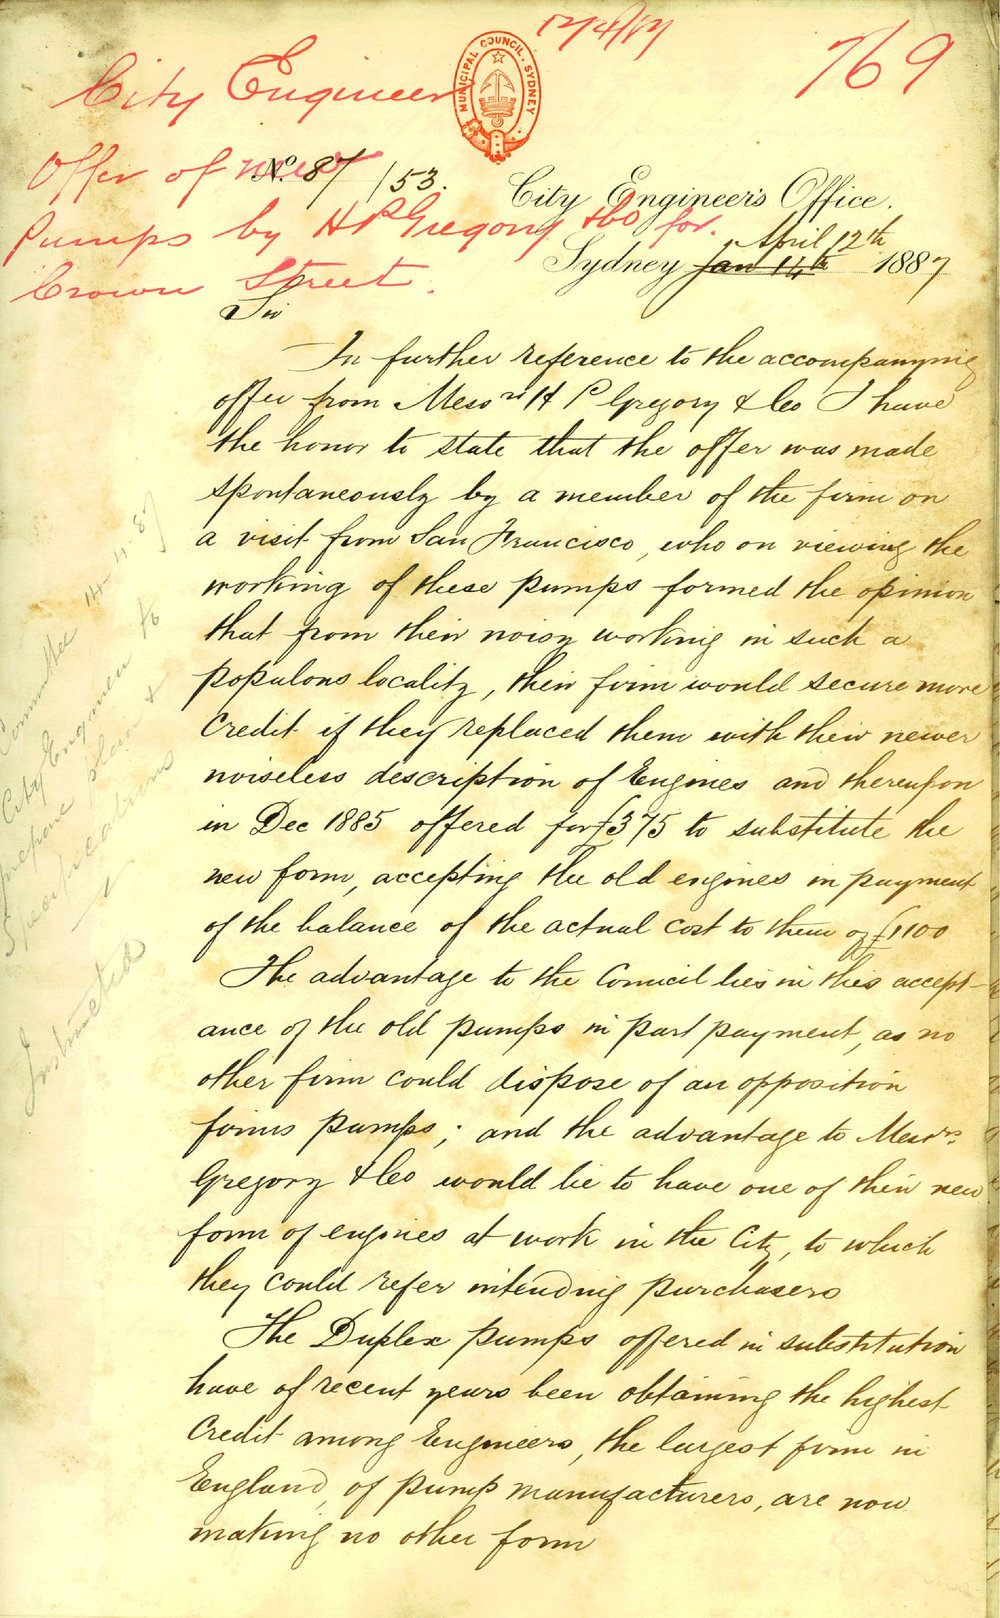 12/4/87
769
MUNICIPAL COUNCIL. SYDNEY
City Engineer
Offer of new
Pumps by H P Gregory & Co for.
Crown Street.
No. 87/153.
City Engineer's Office.
Sydney Jan 14th April 12th 1887
Sir
In further reference to the accompanying
offer from Messrs H P Gregory & Co I have
the honor to state that the offer was made
spontaneously by a member of the firm on
a visit from San Francisco, who on viewing the
working of these pumps formed the opinion
that from their noisy working in such a
populous locality, their firm would secure more
credit if they replaced them with their newer
noiseless description of Engines and thereupon
in Dec 1885 offered for £375 to substitute the
new form, accepting the old engines in payment
of the balance of the actual cost to them of £1100
The advantage to the Council lies in this accept-
ance of the old pumps in part payment, as no
other firm could dispose of an opposition
firms pumps; and the advantage to Messrs.
Gregory & Co would lie to have one of their new
form of engines at work in the City, to which
they could refer intending purchasers
The Duplex pumps offered in substitution
have of recent years been obtaining the highest
credit among Engineers, the largest firm in
England, of pump manufacturers, are now
making no other form
Committee 14.4.87
City Engineer to
prepare plan &
Specifications
Instructed